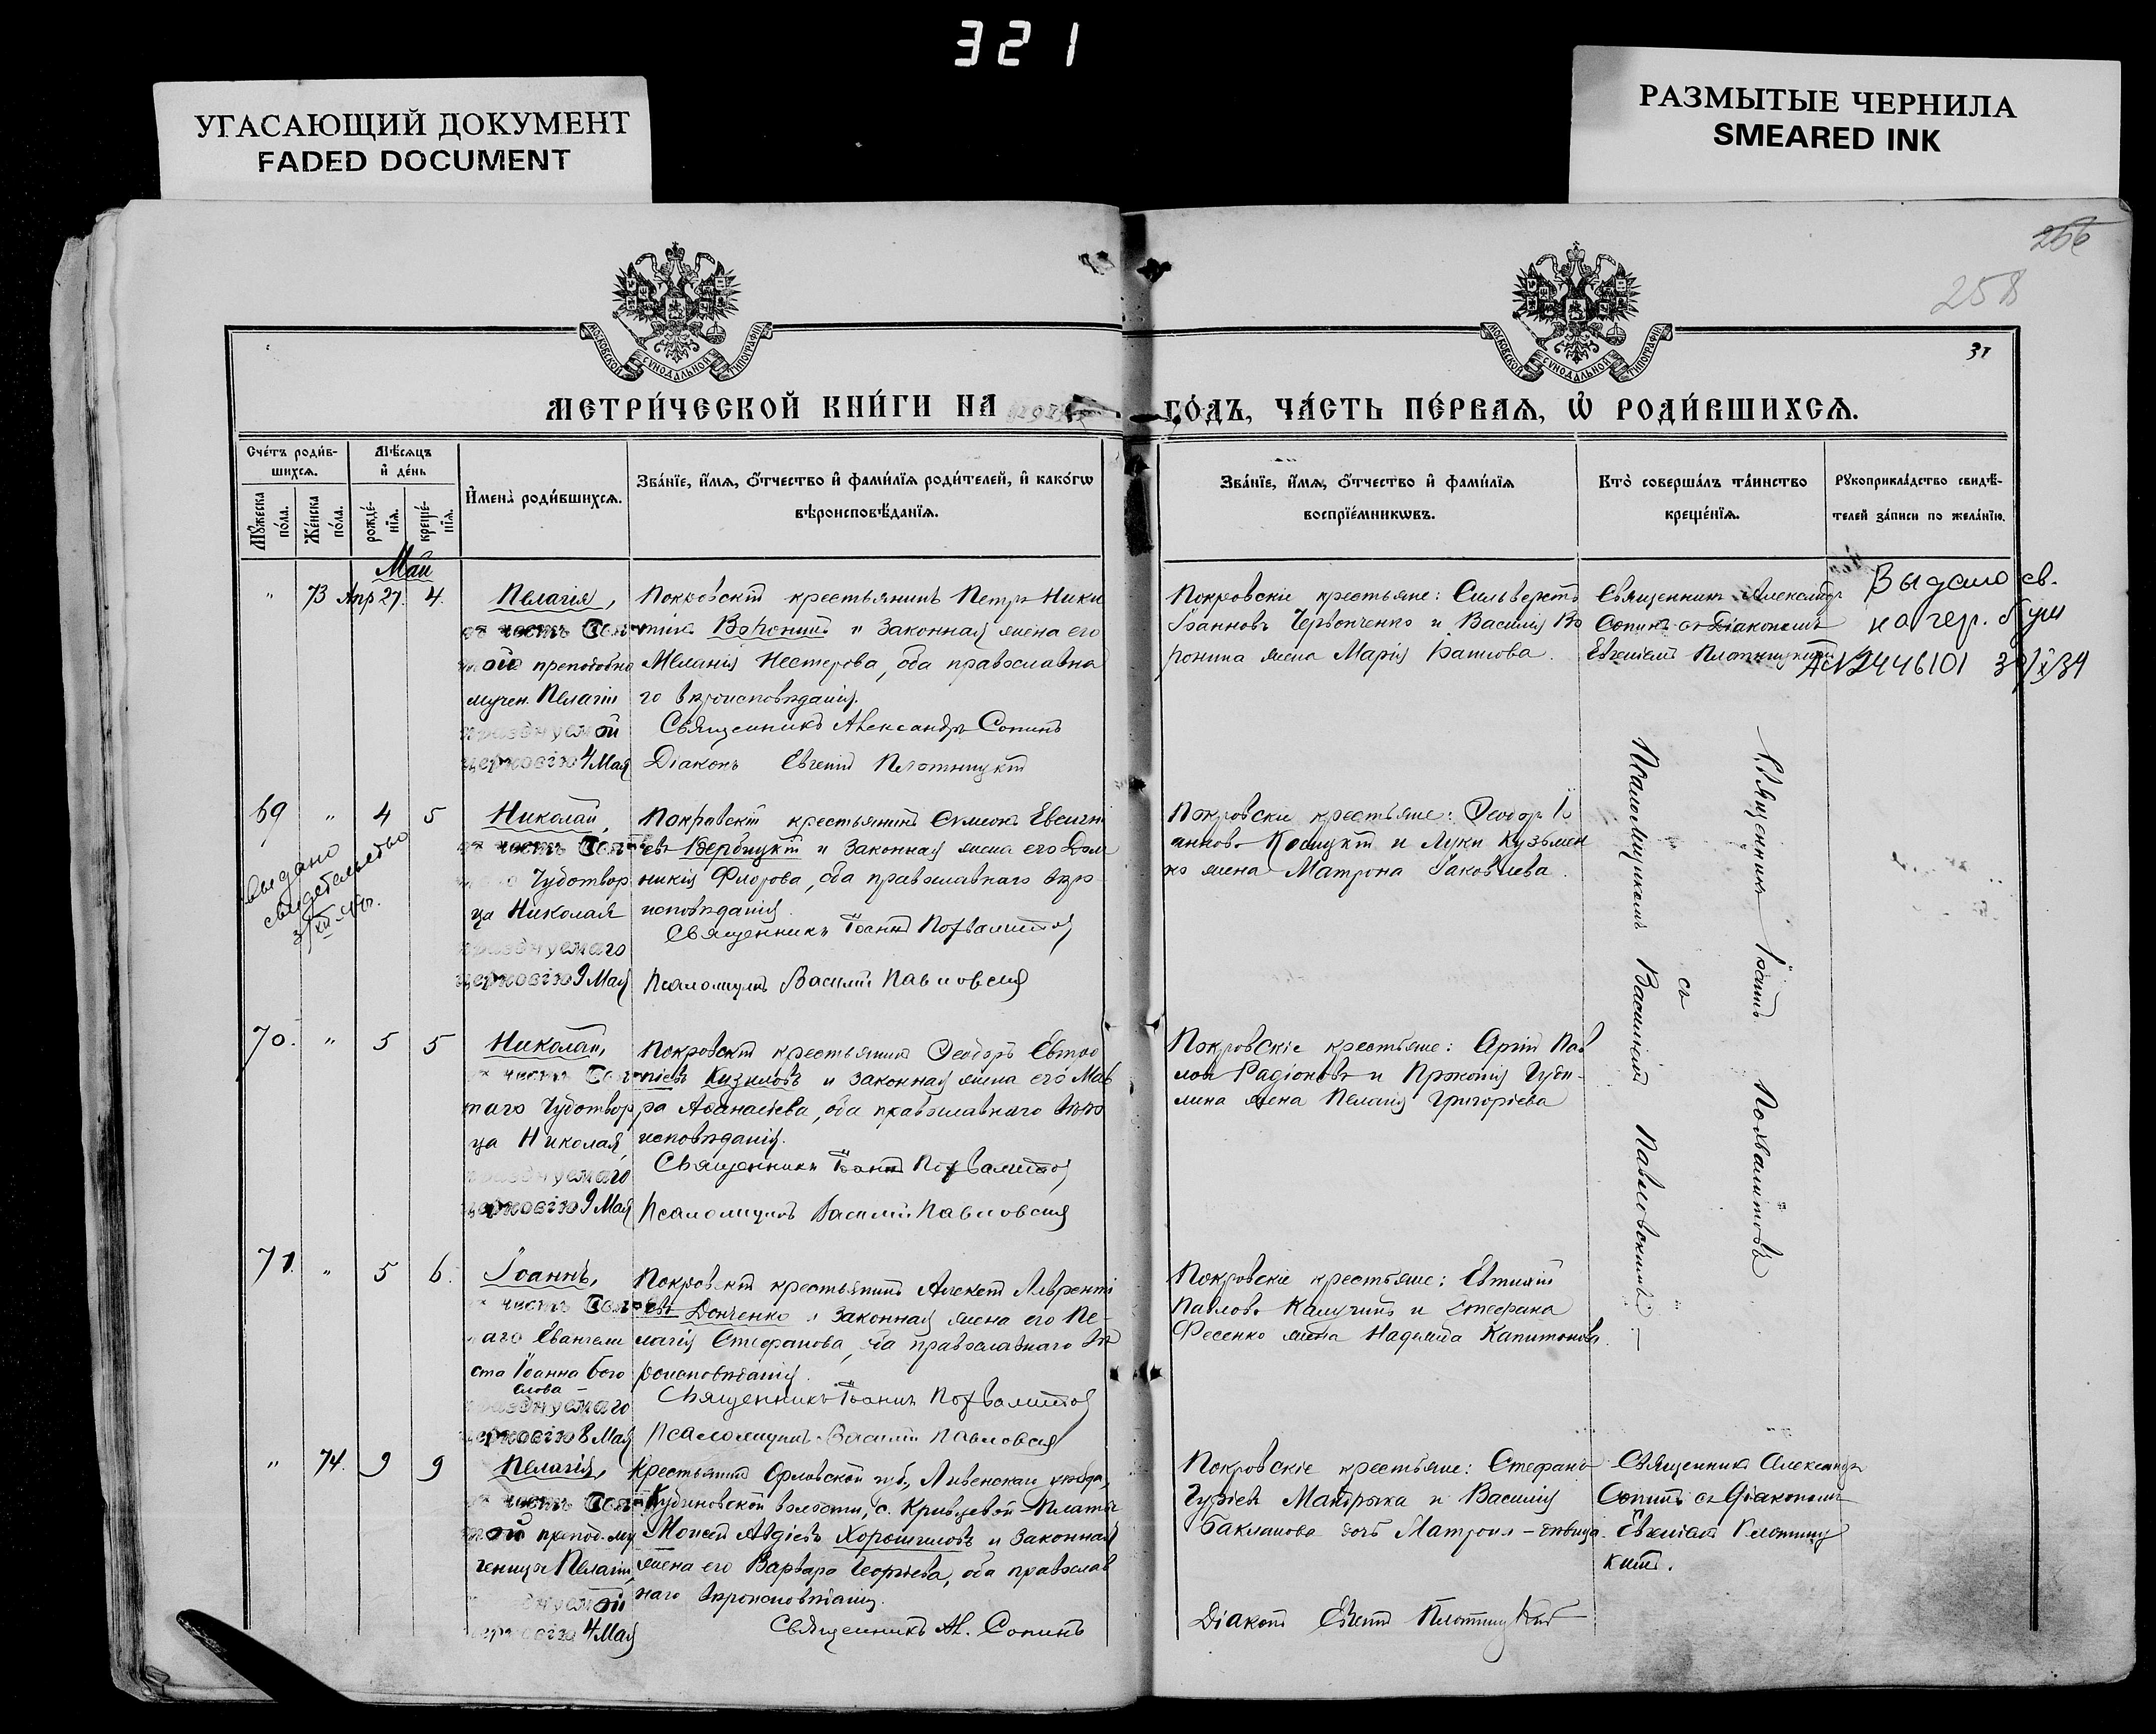 321
УГАСАЮЩИЙ ДОКУМЕНТ
FADED DOCUMENT
РАЗМЫТЫЕ ЧЕРНИЛА
SMEARED INK
258
МОСКОВСКОЙ СѴНОДАЛЬНОЙ ТИПОГРАФІИ
МОСКОВСКОЙ СѴНОДАЛЬНОЙ ТИПОГРАФІИ
31
МЕТРИ́ЧЕСКОЙ КНИ́ГИ НА
ГО́ДЪ, ЧА́СТЬ ПЕ́РВАѦ, Ѡ҆ РОДИ́ВШИХСѦ.
Сче́тъ роди́в-
шихсѧ.
Мѣ́сѧцъ
и҆ де́нь
Мꙋ́жеска по́ла.
Же́нска по́ла.
рожде́-
нїѧ.
креще́-
нїѧ.
И҆мена̀ роди́вшихсѧ.
Зва́нїе, и҆́мѧ, ѻ҆́тчество и҆ фами́лїѧ роди́телей, и҆ како́гѡ
вѣроисповѣ́данїѧ.
Зва́нїе, и҆́мѧ, ѻ҆́тчество и҆ фами́лїѧ
воспрїе́мникѡвъ.
Кто̀ соверша́лъ та́инство
креще́нїѧ.
Рꙋкоприкла́дство свидѣ́-
телей за́писи по жела́нїю.
Май
" 73 Апр 27. 4.
Пелагія,
въ честь Свя
той преподобно
мучен. Пелагіи
празднуемой
церковію 4 Мая
Покровскій крестьянинъ Петръ Ники
тинъ и законная жена его
Меланія Нестерова, оба православна
го вѣроисповѣданія.
Священникъ Александръ Сопинъ
Діаконъ Евгеній Плотницкій
Покровскіе крестьяне: Сильвестръ
Іоанновъ Червонченко и Василія Во
ронина жена Марія Іоаннова.
Священникъ Александръ
Сопинъ съ Діакономъ
Евгеніемъ Плотницкимъ
Выдано св.
на гер. бум
2446101
69 " 4 5
выдано
свидетельство
Николай,
въ честь Свя
Чудотвор
ца Николая
празднуемаго
церковію 9 Мая
Покровскій крестьянинъ Сѵмеонъ Евсигні
евъ Вербицкій и законная жена его Дом
никія Флорова, оба православнаго вѣро
исповѣданія.
Священникъ Іоаннъ Похвалитовъ
Псаломщикъ Василій Павловскій
Покровскіе крестьяне: Ѳеодоръ Іо
анновъ и Луки Кузьмен
ко жена Матрона Іаковлева.
Псаломщикомъ Василіемъ Павловскимъ
съ
Священникъ Іоаннъ Похвалитовъ
70. " 5 5
Николай,
въ честь Свя
таго Чудотвор
ца Николая,
празднуемаго
церковію 9 Мая
Покровскій крестьянинъ Ѳеодоръ Евтро
піевъ Кизиловъ и законная жена его Мав
ра Аѳанасіева, оба православнаго вѣро
исповѣданія.
Священникъ Іоаннъ Похвалитовъ
Псаломщикъ Василій Павловскій
Покровскіе крестьяне: Пав
ловъ Радіоновъ и Прокопія Губи-
лина жена Пелагія Григоріева
71. " 5 6.
Іоаннъ,
въ честь Свя
таго Евангели
ста Іоанна Бого
слова
празднуемаго
церковію 8 Мая
Покровскій крестьянинъ Алексій Лаврент
евъ Донченко и законная жена его Пе-
лагія Стефанова, оба православнаго вѣ
роисповѣданія.
Священникъ Іоаннъ Похвалитовъ
Псаломщикъ Василій Павловскій
Покровскіе крестьяне: Евтихій
Павловъ Калугинъ и Стефана
Фесенко жена Надежда Капитонова.
" 74. 9 9
Пелагія,
въ честь Свя
той препод. му
ченицы Пелагіи,
празднуемой
церковію 4 Мая
Крестьянинъ Орловской губ., Ливенскаго уѣзда,
волости, с.
Моисей Авдіевъ Хорошиловъ и законная
жена его Варвара Георгіева, оба православ
наго вѣроисповѣданія.
Священникъ Ал. Сопинъ
Покровскіе крестьяне: Стефанъ
Гуріевъ и Василія
Бакланова дочь Матрона - дѣвица.
Діаконъ Евгеній Плотницкій
Священникъ Александръ
Сопинъ съ Діакономъ
Евгеніемъ Плотниц
кимъ.